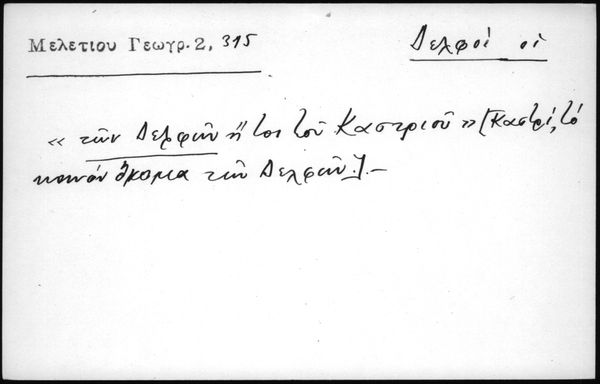 Μελετίου Γεωγρ. 2, 315
Δελφοί οἱ
« τῶν Δελφῶν ἤτοι τοῦ Καστριοῦ » [Καστρί, τό
κοινόν ὄνομα τῶν Δελφῶν]. —